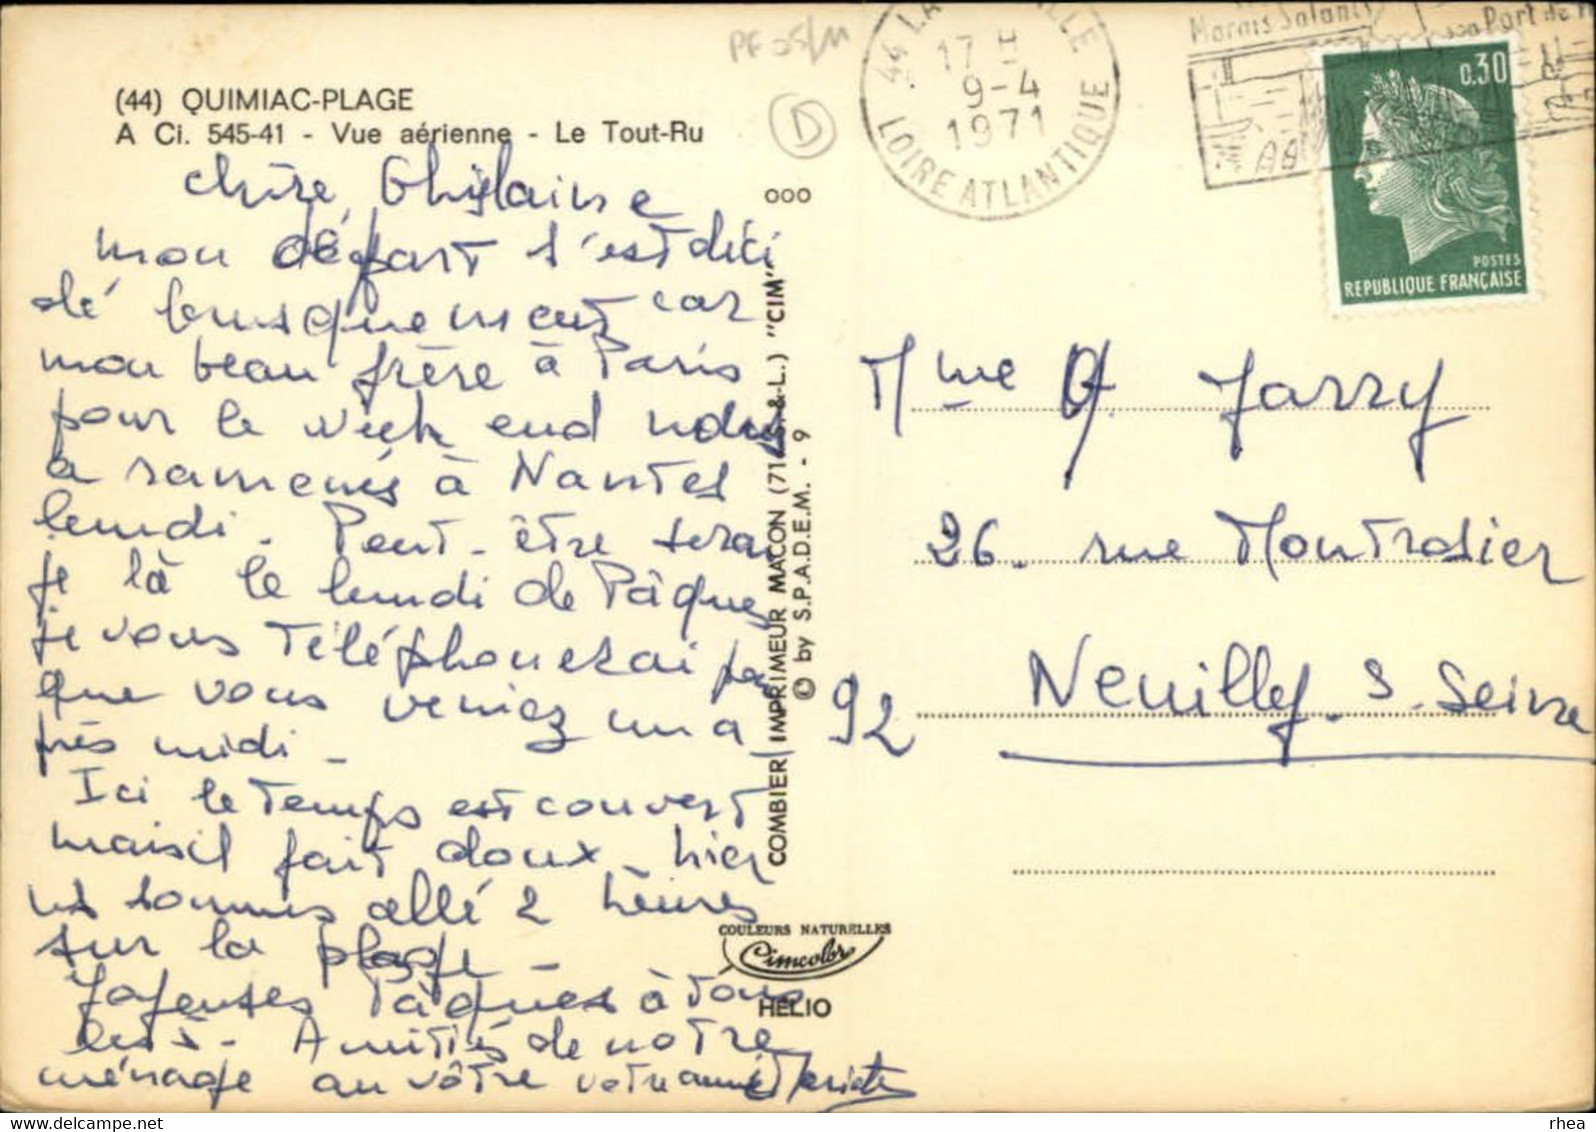 PF 25/11
(44) QUIMIAC-PLAGE
A Ci. 545-41 - Vue aérienne - Le Tout-Ru
chère Ghyslaine
mon départ s'est déci
dé brusquement car
mon beau frère à Paris
pour le week end nous
a ramenés à Nantes
lundi. Peut-être serai
je là le lundi de Pâques
je vous téléphonerai pour
que vous veniez un a
près midi -
Ici le temps est couvert
mais il fait doux - hier
ns sommes allé 2 heures
sur la plage -
Joyeuses Pâques à tous
les - Amitiés de notre
ménage au vôtre votre amie
ooo
COMBIER IMPRIMEUR MACON (71 S.-&-L.) "CIM"
© by S.P.A.D.E.M. - 9
COULEURS NATURELLES
Cimcolor
HELIO
D
44 LA
17 H
9-4
1971
LOIRE ATLANTIQUE
Marais Salants
son Port de
0.30
POSTES
REPUBLIQUE FRANÇAISE
Mme G. Jarry
26. rue Montrosier
92 Neuilly. s. Seine
rhea